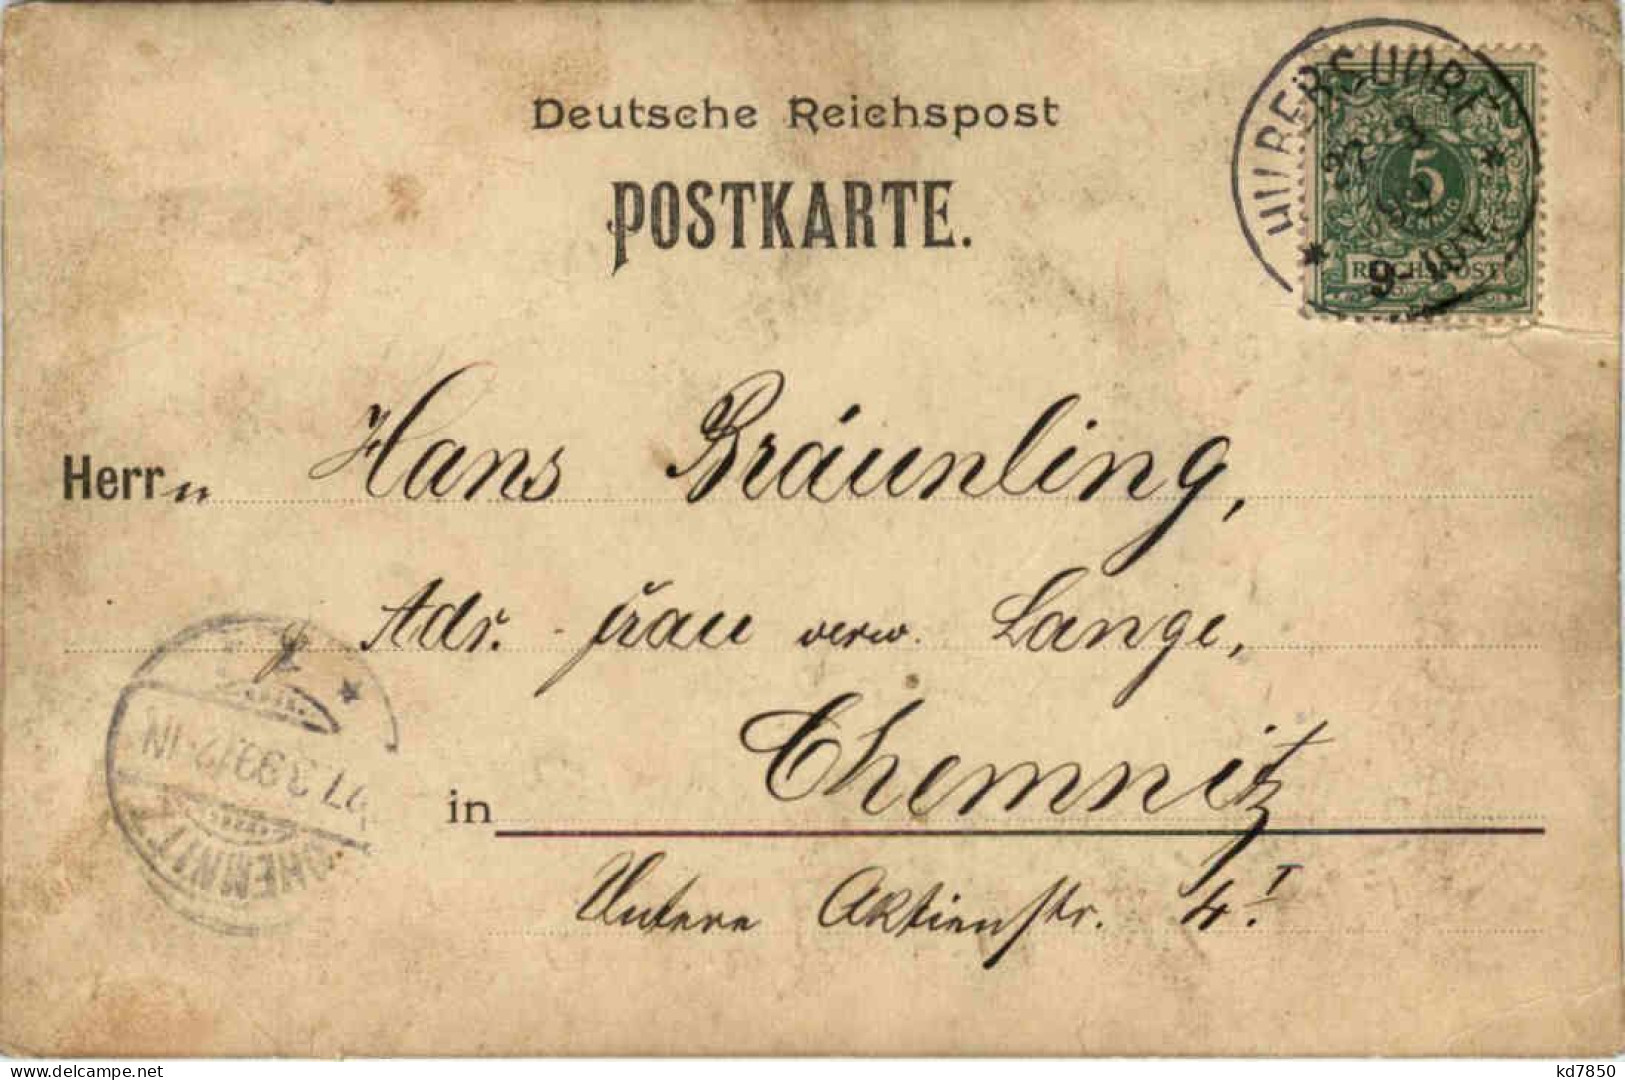 Deutsche Reichspost
POSTKARTE.
HILBERSDORF
27 3
9-10V.
5
PFENNIG
REICHSPOST
Herrn Hans Bräunling,
Adr. Frau verw. Lange,
in Chemnitz
Untere Aktienstr. 4.I
CHEMNITZ
27.3.99.12-1N
delcampe.net
kd7850